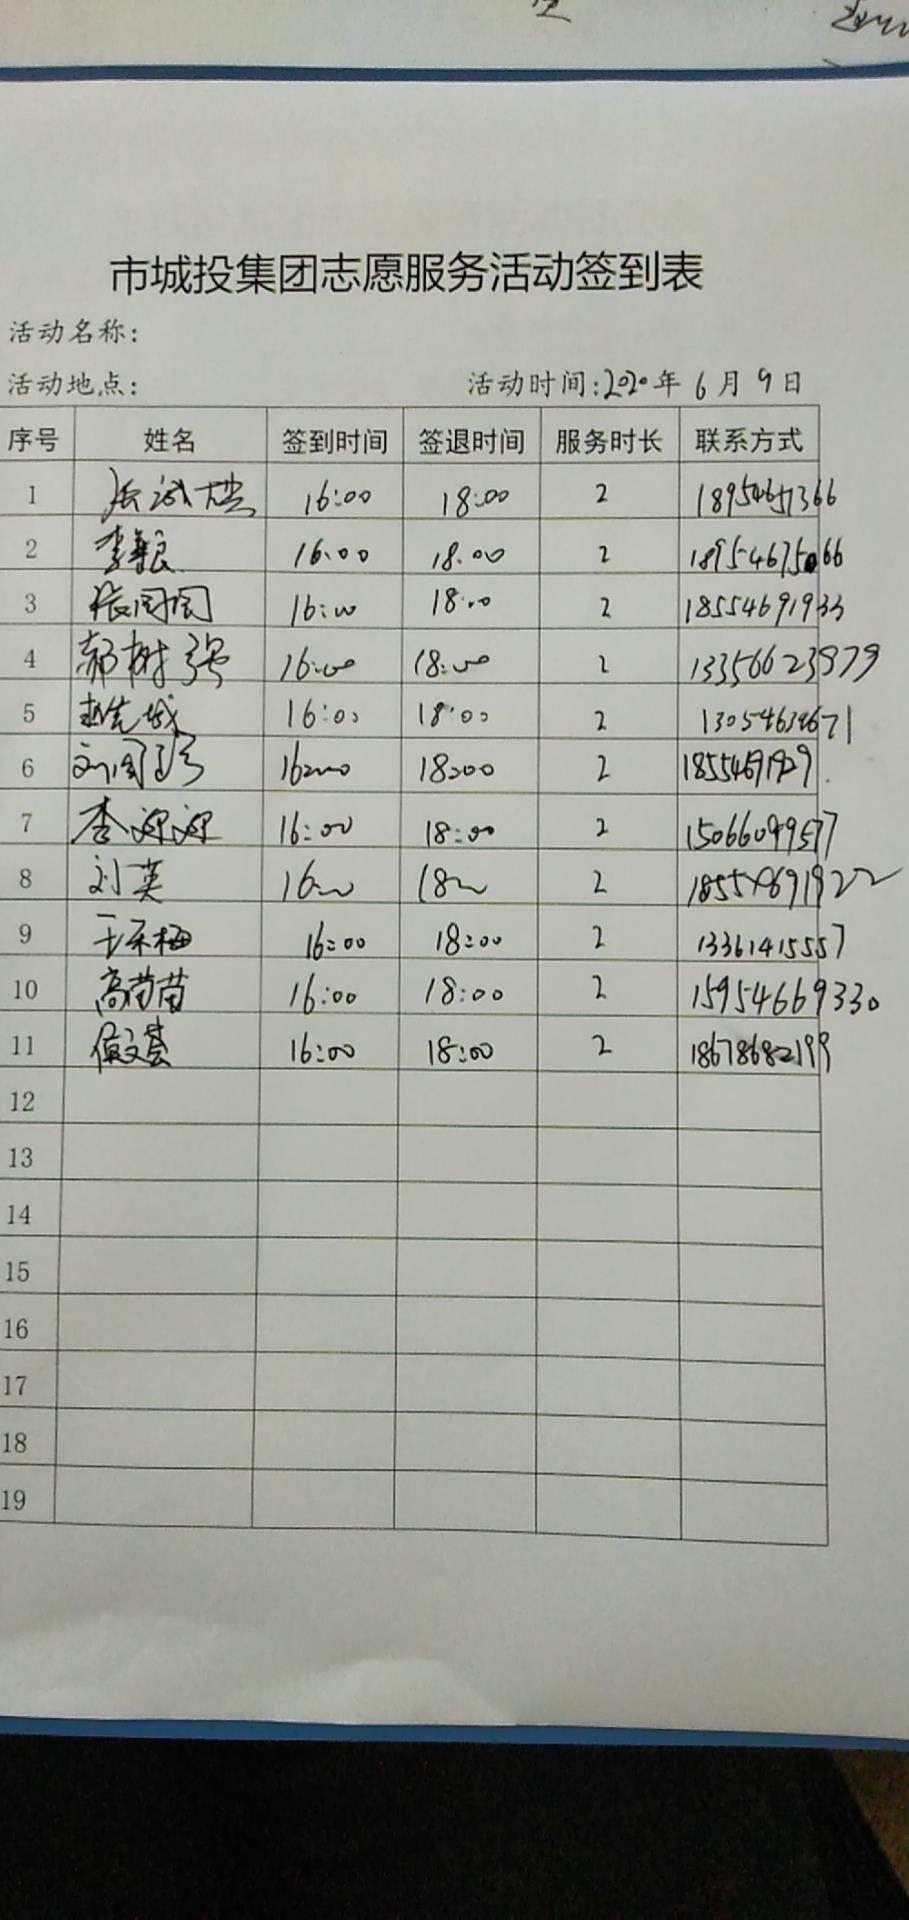 市城投集团志愿服务活动签到表
活动名称:
活动地点: 活动时间:2020年6月9日
序号 姓名 签到时间 签退时间 服务时长 联系方式
1 16:00 18:00 2 18954651366
2 16:00 18:00 2 18954675066
3 张周周 16:00 18:00 2 18554691933
4 郝树强 16:00 18:00 2 13356623979
5 16:00 18:00 2
6 16:00 18:00 2 18554691929
7 李迎迎 16:00 18:00 2 15066099577
8 刘英 16:00 18:00 2 18554691922
9 16:00 18:00 2 13361415557
10 高苗苗 16:00 18:00 2 15954669330
11 16:00 18:00 2 18678682199
12
13
14
15
16
17
18
19